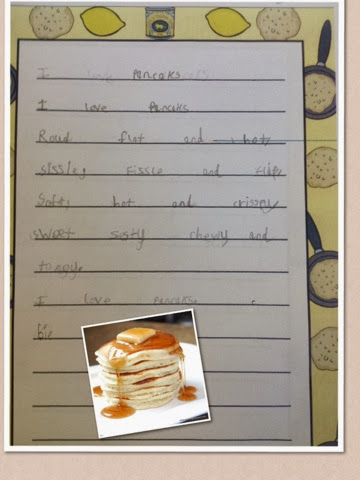 I love Pancakes
I love Pancake
Roud flat and hot
sissley Fissle and flip
Soft, hot and crispy
sweet sosty chewy and
tangy.
I love pancakse